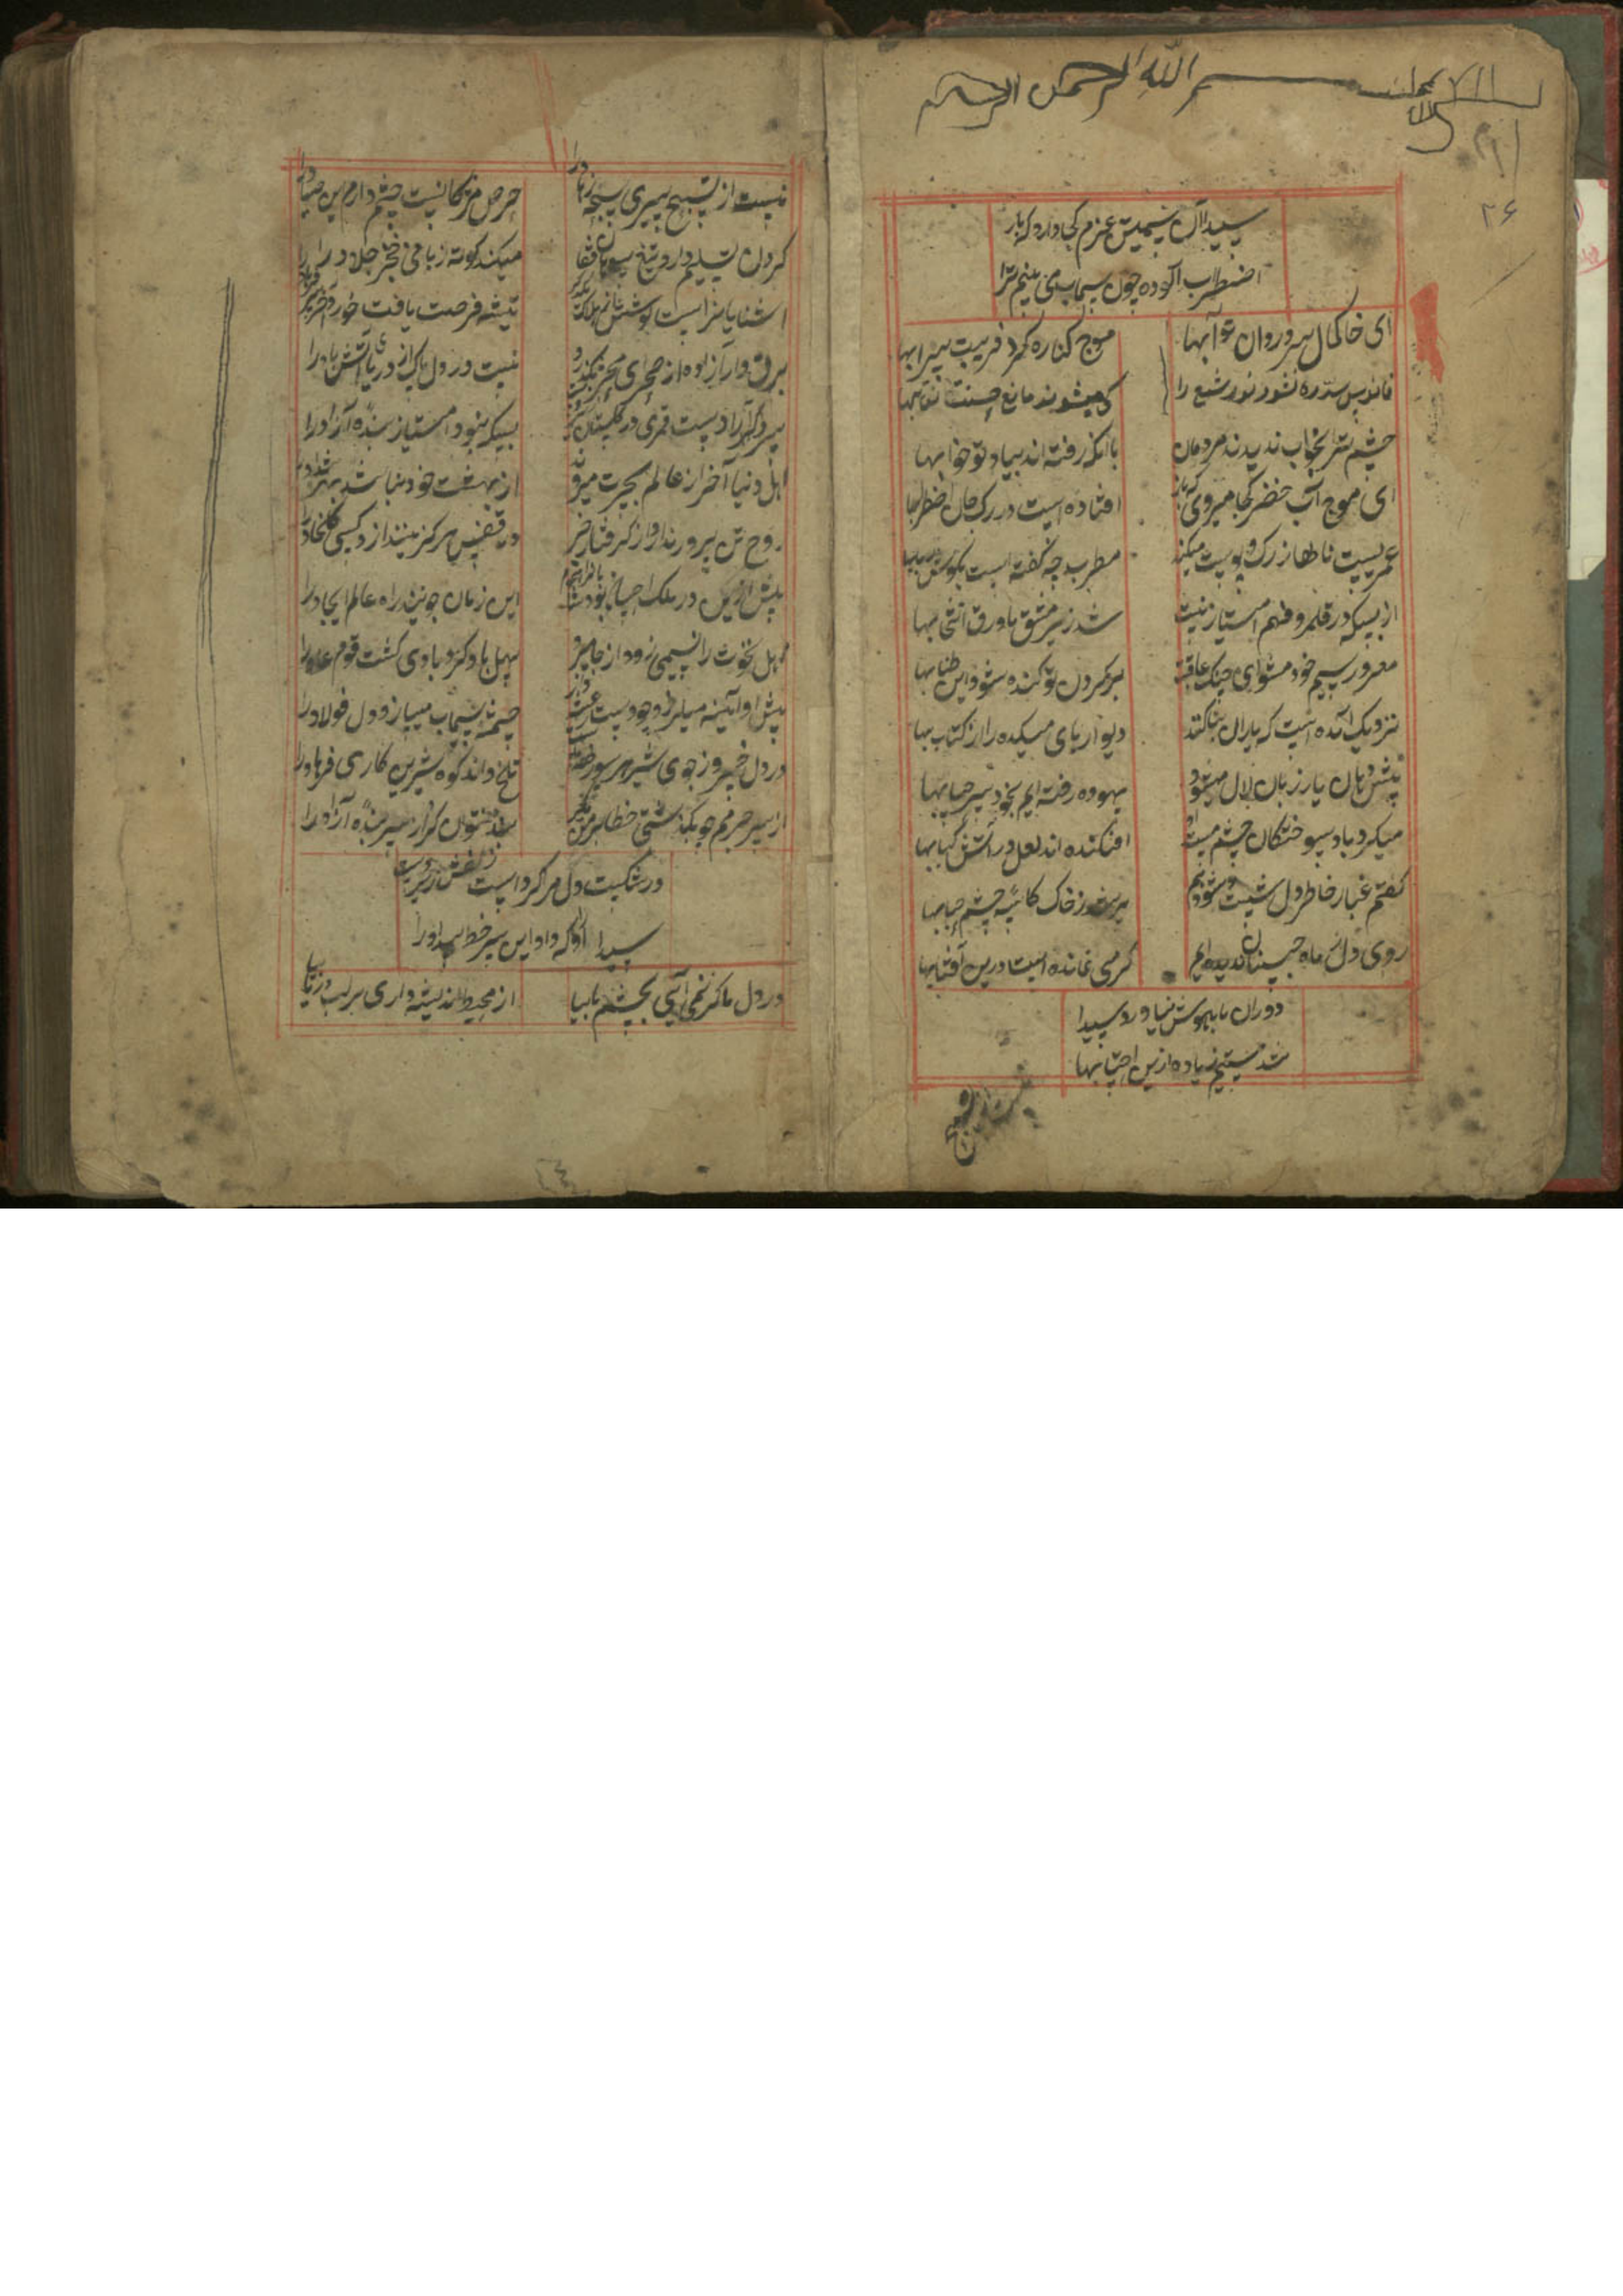 بسم الله الرحمن الرحیم
۲۶
سیدا آن سیمتن عزم کجا دارد که باز
اضطراب آلوده چون سیماب می بینم ترا
ای خاکمال سرو روان تو آبها
موج کناره کرد فریب سرابها
فانوس سد ره نشود نور شمع را
کی میشوند مانع حسنت نقابها
چشم ترا بخواب ندیدند مردمان
با آنکه رفته اند بیاد تو خوابها
ای موج آب خضر کجا میروی که باز
افتاده است در رگ جان اضطرابها
عمریست ناله از رگ و پوست میکند
مطرب چه گفته است بگوش
از بسکه در قلمرو فهم امتیاز نیست
شد زیر مشق با ورق انتخابها
مغرور سیم خود مشو ای چنگ عاقبت
بر گردن تو کنده شود این طنابها
نزدیک آمده است که یاران بنا کنند
دیوارهای میکده را از کتابها
پیش دهان یار زبان لال میشود
بیهوده رفته ایم بخود بر حسابها
میکرد یاد سوختگان چشم مست او
افکنده اند لعل در آتش کبابها
گفتم غبار خاطر دل شست و شو دهم
پر شد ز خاک کاسه چشم حبابها
روی دل ز ماه جبینان ندیده ایم
گرمی نمانده است درین آفتابها
دوران ما بهوش نیاورد سیدا
شد مستیم زیاده ازین احتسابها
نیست از تسبیح پیری پنجه زهاد را
حرص مژگانیست چشم دارم این صیاد را
گردن تسلیم دارد تیغ
میکند کوته زبانی خنجر جلاد را
آشنایانراست کوشش در هلاک یکدگر
تیشه فرصت یافت خورد آخر سر فرهاد را
برق وار آزاده از صحرای محشر بگذرد
نیست در دل باک از دریای آتش باد را
سرو گرد آزاد نیست قمری در گلستان
بسکه نبود امتیاز بنده آزاد را
اهل دنیا آخر از عالم بحسرت میروند
از بهشت خود دنیا شد بهره شداد را
روح تن پرور ندارد از گرفتاری خبر
در قفس هرگز نیندازد کسی را
پیش ازین در ملک احسان بود
این زمان جویند راه عالم ایجاد را
اهل نخوت را نسیمی زود از جا میبرد
سهل باد و گردبادی گشت قوم عاد را
پیش او آیینه میلرزد وجود
چشمه سیماب میسازد دل فولاد را
در دل خسرو ز جوی شیر
تلخ داند کوه شیرین کاری فرهاد را
از سر جرمم چو بگذشتی خطا بر من مگیر
بنده نتوان کرد از سر بنده آزاد را
در شکست دل مر کرد است زلفش
سیدا آنکه داد این سر خط بیداد را
در دل ما گر نمی آیی بچشم ما بیا
از محیط اندیشه داری بر لب دریا بیا